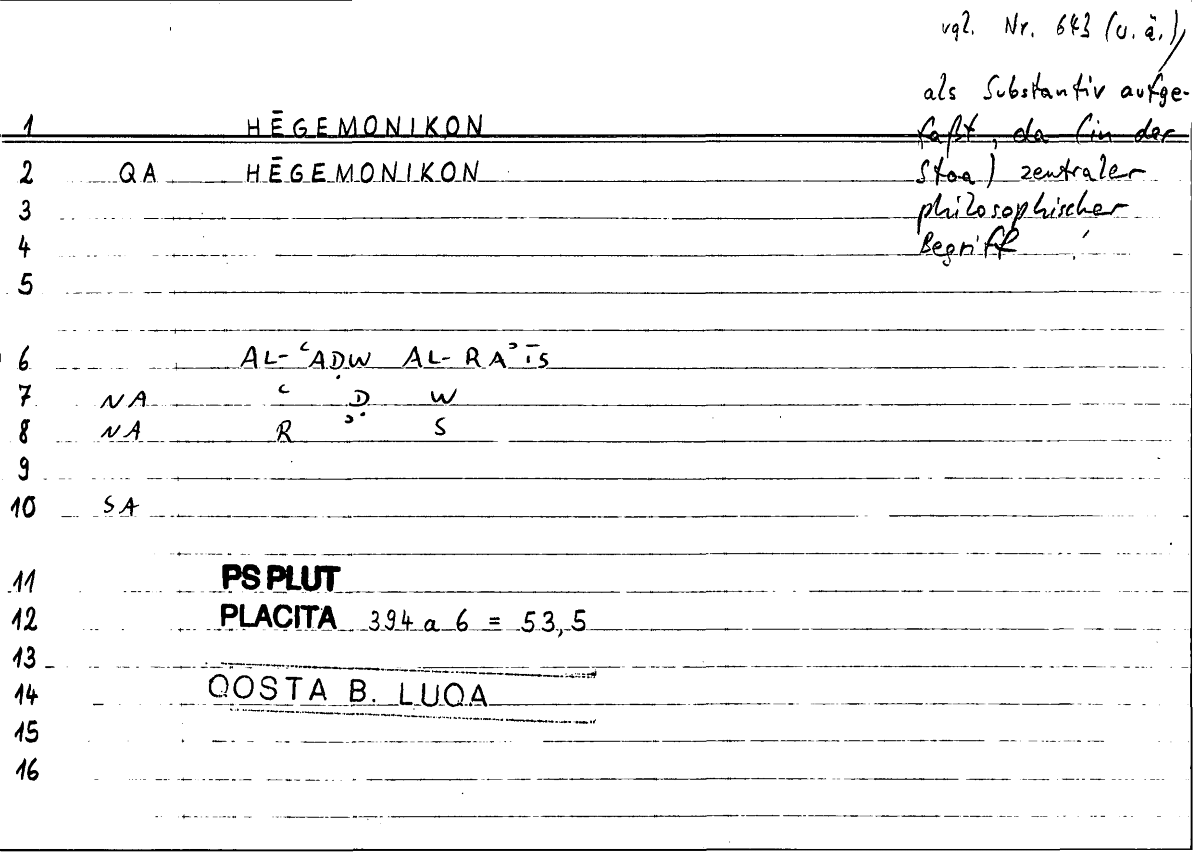 vgl. Nr. 643 (u. ä.),
als Substantiv aufge-
faßt, da (in der
Stoa) zentraler
philosophischer
Begriff !
1 HĒGEMONIKON
2 QA HĒGEMONIKON
3
4
5
6 AL-ʿAḌW AL-RAʾĪS
7 NA ʿ Ḍ W
8 NA R ʾ S
9
10 SA
11 PS PLUT
12 PLACITA 394 a 6 = 53,5
13
14 QOSTA B. LUQA
15
16